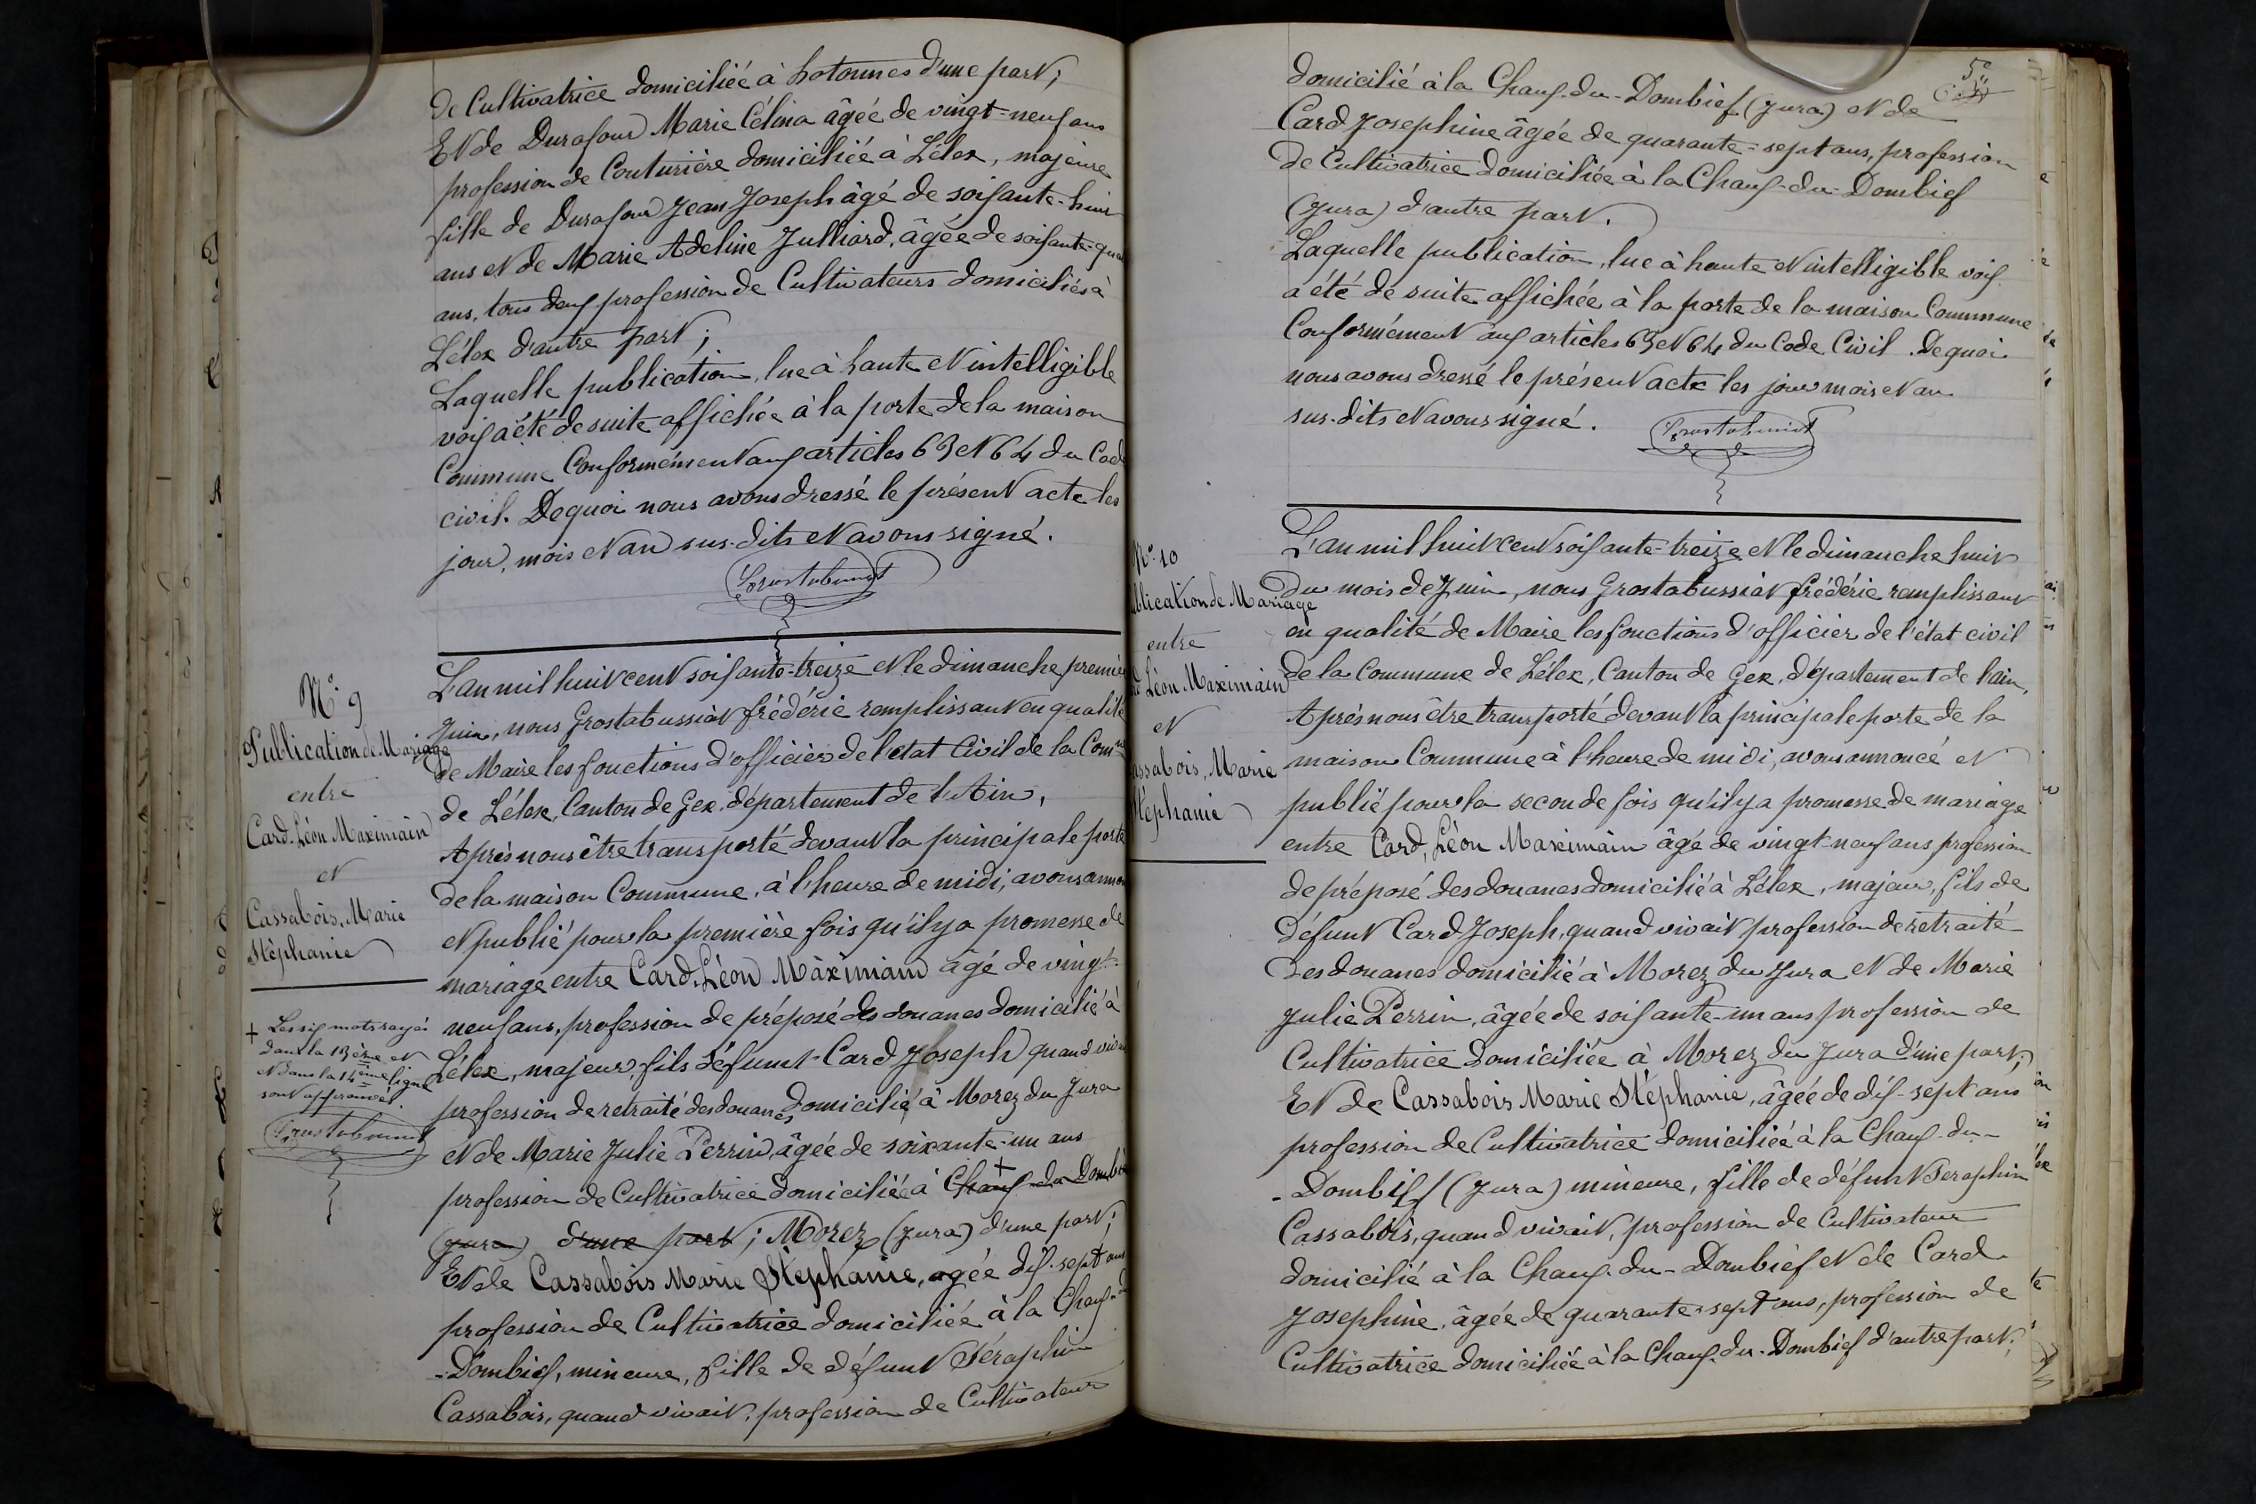 de Cultivatrice domiciliée à hotonnes d'une part;
Et de Durafour Marie Célina âgée de vingt-neuf ans
profession de Couturière domiciliée à Lélex, majeure
fille de Durafour Jean Joseph âgé de soixante-huit
ans et de Marie Adeline Julliard, âgée de soixante-qua
ans, tous deux profession de Cultivateurs domiciliés à
Lélex d'autre part;
Laquelle publication, lue à haute et intelligible
voix a été de suite affichée à la porte de la maison
Commune Conformément aux articles 63 et 64 du Code
civil. De quoi nous avons dressé le présent acte les
jour, mois et an sus-dits et avons signé.
Nº 9
Publication de Mariage
entre
Card. Léon Maximain
et
Cassabois, Marie
Stéphanie
+ Les six mots rayés
dans la 13ème et
et dans la 14ème ligne
sont approuvés.
L'an mil huit cent soixante-treize et le dimanche premier
juin, nous Grostabussiat frédéric remplissant en qualité
de Maire les fonctions d'officier de l'état Civil de la Comne
de Lélex, Canton de Gex, département de l'Ain,
Après nous être transporté devant la principale porte
de la maison Commune, à l'heure de midi, avons annon
et publié pour la première fois qu'il y a promesse de
mariage entre Card. Léon Maximain âgé de vingt-
neuf ans, profession de préposé des douanes domicilié à
Lélex, majeur, fils défunt Card Joseph quand vivait
profession de retraité des douanes domicilié à Morez du Jura
et de Marie Julie Perrin, âgée de soixante-un ans
profession de Cultivatrice domiciliée à + Chaux-du Dombi
(jura) d'une part; Morez (jura) d'une part;
Et de Cassabois Marie Stéphanie, agée dix-sept ans
profession de Cultivatrice domiciliée à la Chaux-d
-Dombief, mineure, fille de défunt Séraphin
Cassabois, quand vivait, profession de Cultivateur
5e
domicilié à la Chaux-du-Dombief (jura) et de
Card Josephine âgée de quarante-sept ans, profession
de Cultivatrice domiciliée à la Chaux-du-Dombief
(jura) d'autre part.
Laquelle publication, lue à haute et intelligible voix
a été de suite affichée à la porte de la maison Commune
Conformément aux articles 63 et 64 du Code Civil. De quoi
nous avons dressé le présent acte les jour mois et an
sus-dits et avons signé.
Nº 10
blication de Mariage
entre
Léon Maximain
et
assabois, Marie
téphanie
L'an mil huit cent soixante-treize et le dimanche huit
du mois de Juin, nous Grostabussiat frédéric remplissant
en qualité de Maire les fonctions d'officier de l'état civil
de la Commune de Lélex, Canton de Gex, département de l'ain,
Après nous être transporté devant la principale porte de la
maison Commune à l'heure de midi, avons annoncé et
publié pour la seconde fois qu'il y a promesse de mariage
entre Card, Léon Maximain âgé de vingt-neuf ans profession
de préposé des douanes domicilié à Lélex, majeur, fils de
défunt Card Joseph, quand vivait profession de retraité
des douanes domicilié à Morez du Jura et de Marie
julie Perrin, âgée de soixante-un ans profession de
Cultivatrice domiciliée à Morez du Jura d'une part;
Et de Cassabois Marie Stéphanie, âgée de dix-sept ans
profession de Cultivatrice domiciliée à la Chaux-du-
-Dombief (jura) mineure, fille de défunt Seraphin
Cassabois, quand vivait, profession de Cultivateur
domicilié à la Chaux-du-Dombief et de Card
Josephine, âgée de quarante-sept ans, profession de
Cultivatrice domiciliée à la Chaux-du-Dombief d'autre part;